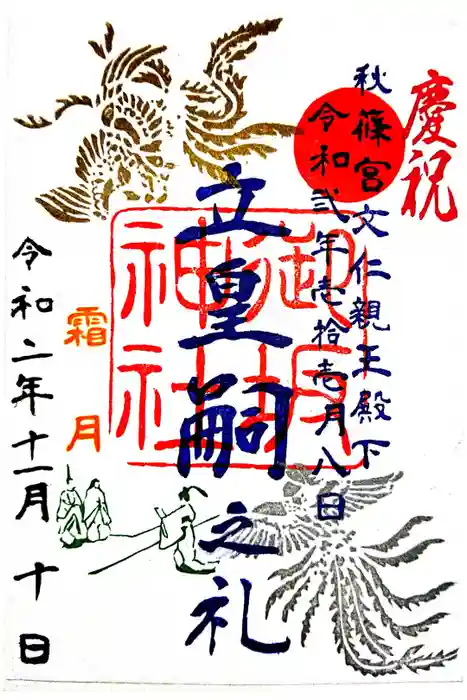 慶祝
秋篠宮文仁親王殿下
令和弐年壱拾壱月八日
立皇嗣之礼
御坂神社
霜月
令和二年十一月十日